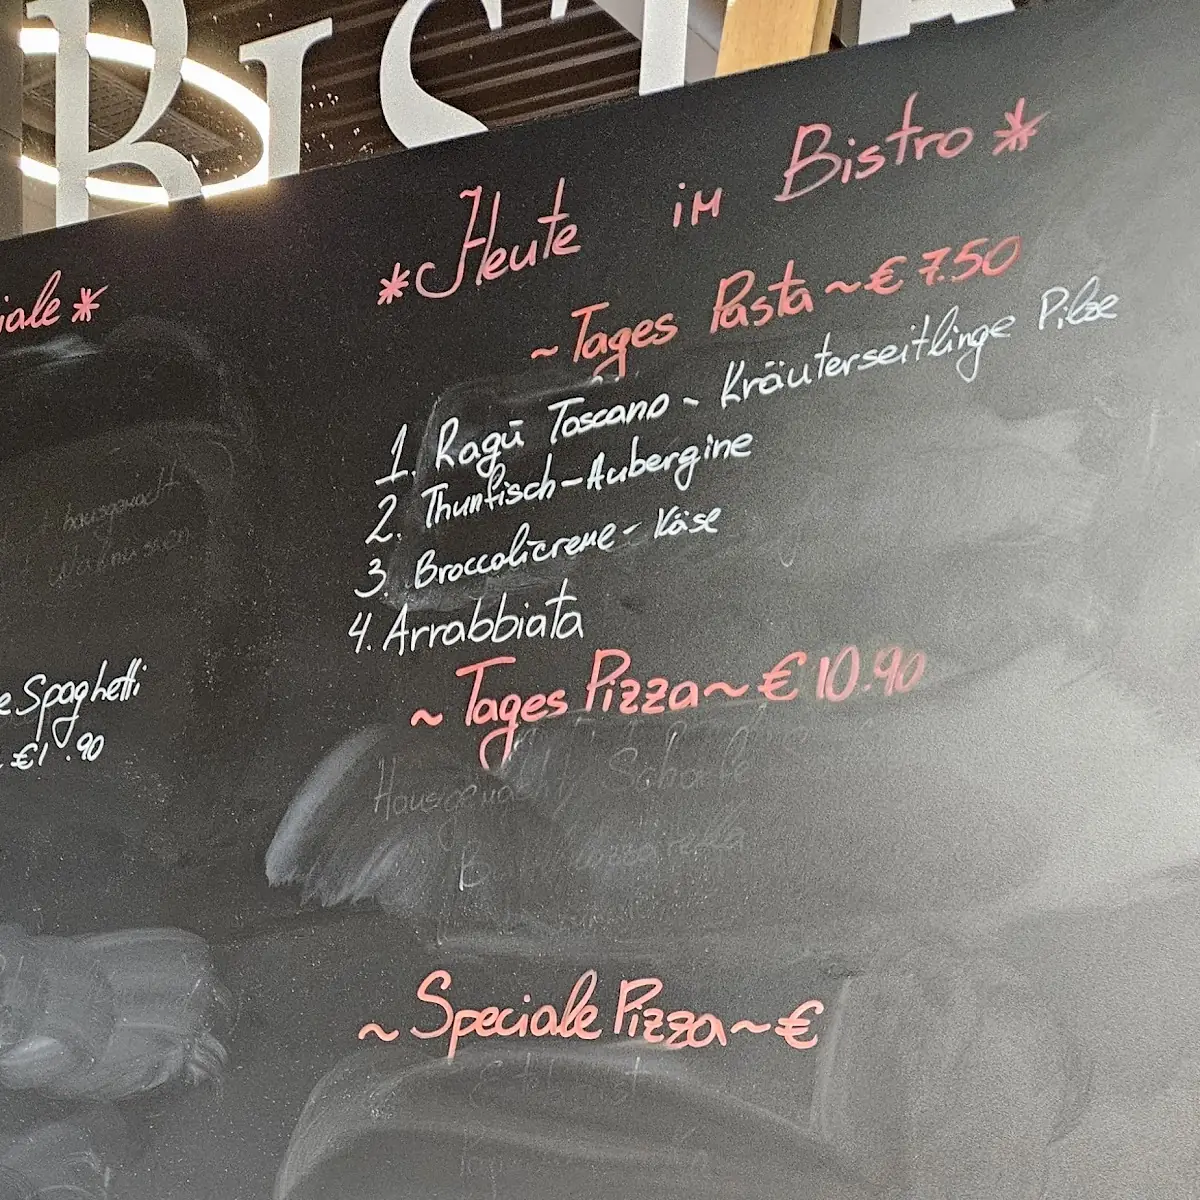 BIST
iale *
e Spaghetti
€1.90
* Heute im Bistro *
~ Tages Pasta ~ € 7.50
1. Ragū Toscano - Kräuterseitlinge Pilze
2. Thunfisch-Aubergine
3. Broccolicreme - Käse
4. Arrabbiata
~ Tages Pizza ~ € 10.90
~ Speciale Pizza ~ €